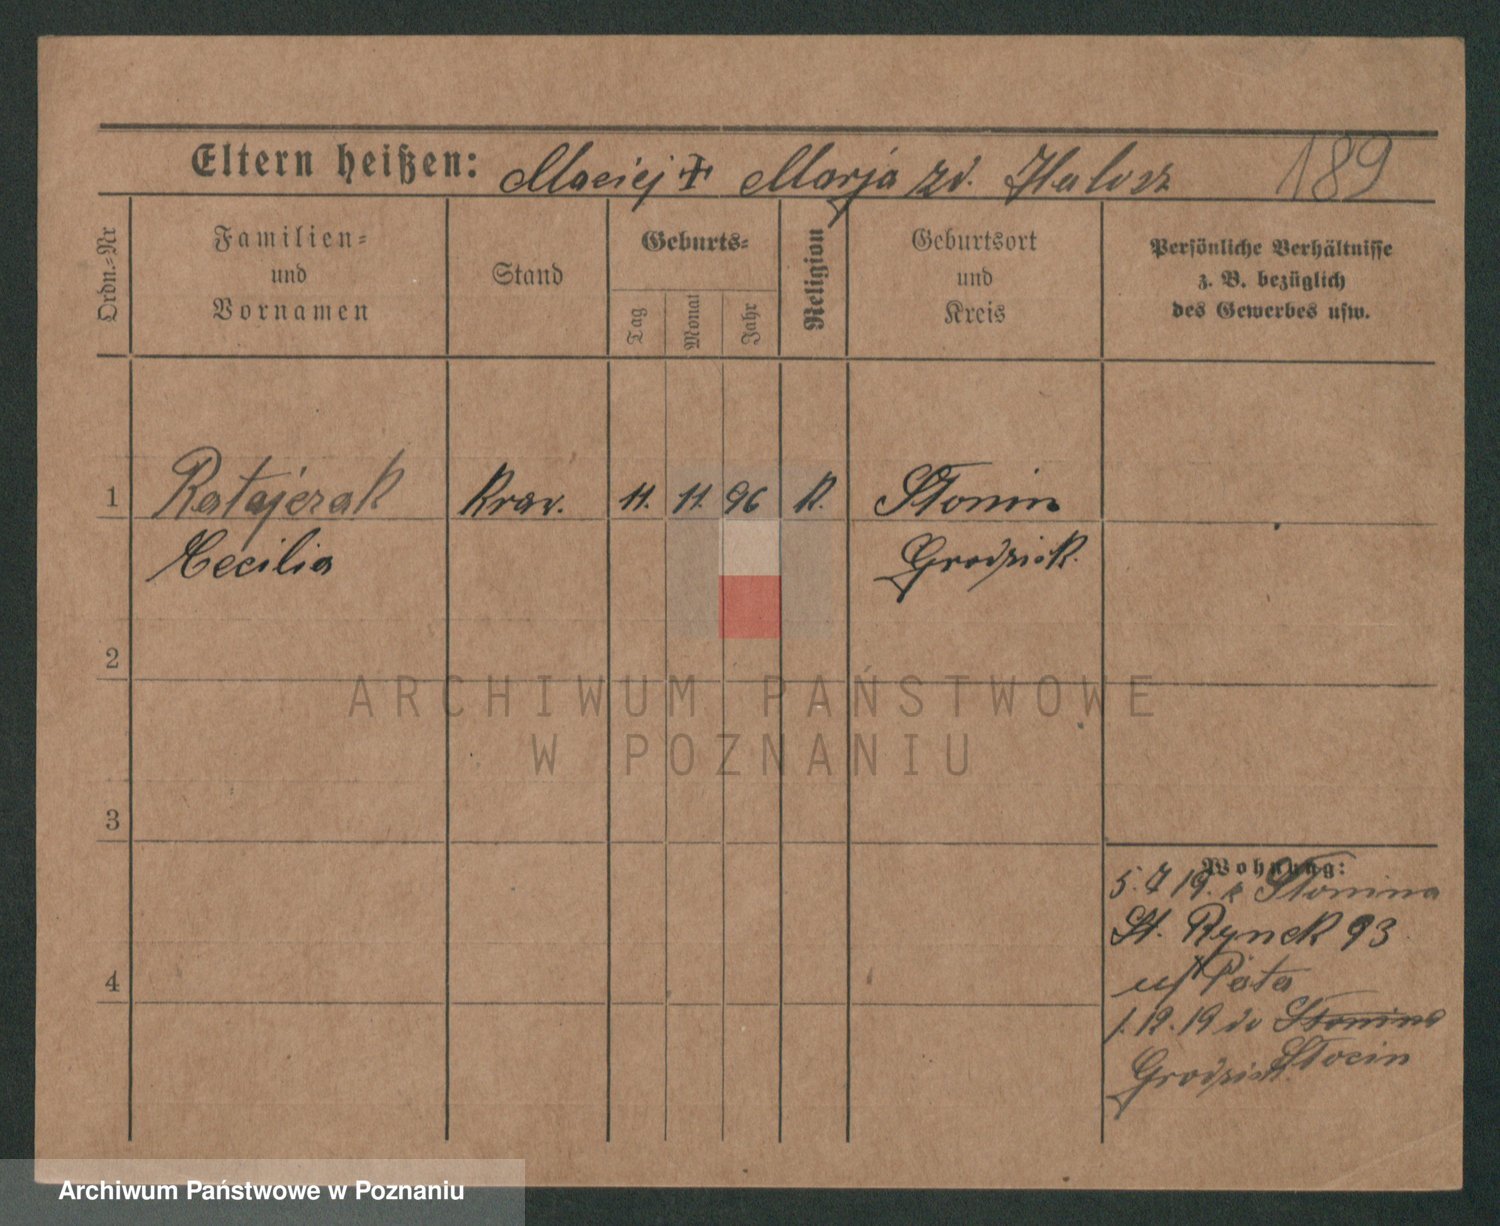 Eltern heißen: Maciej Marja zd. Halasz 189
Ordn.-Nr
Familien=
und
Vornamen
Stand
Geburts=
Tag
Monat
Jahr
Religion
Geburtsort
und
Kreis
Persönliche Verhältnisse
z. B. bezüglich
des Gewerbes usw.
1 Ratajczak Kraw. 11. 11. 96 K. Słonin
Cecilia Grodzisk.
2
ARCHIWUM PAŃSTWOWE
W POZNANIU
3
Wohnung:
5.7 19. z Słonina
St. Rynek 93
1.12.19 do Słonina
Grodzisk.
4
Archiwum Państwowe w Poznaniu